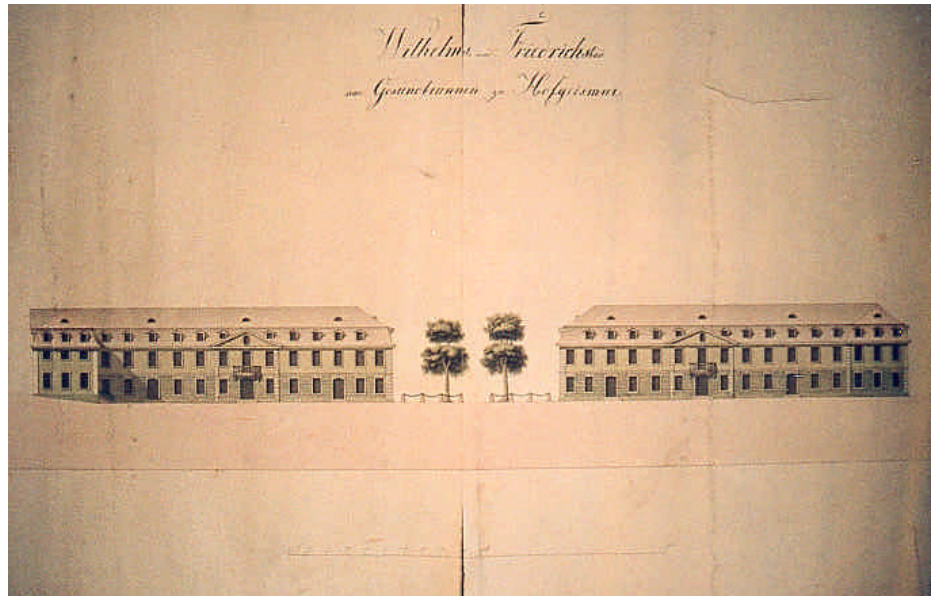 Wilhelms und Friedrichs
am Gesundbrunnen zu Hofgeismar.